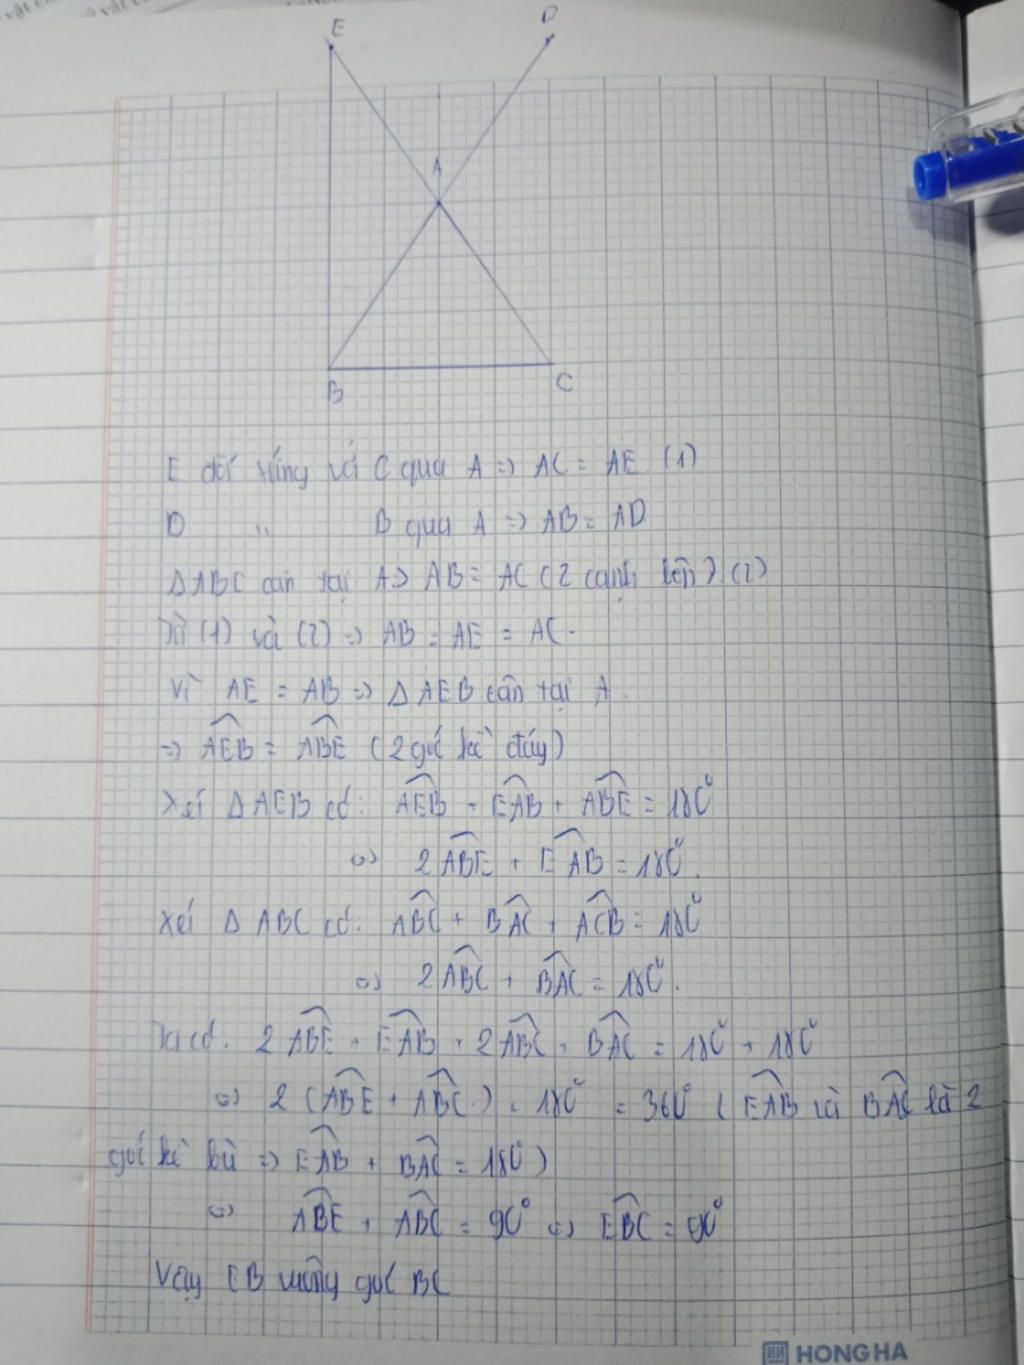 E
D
A
B
C
E đối xứng với C qua A => AC = AE (1)
D " B qua A => AB = AD
ΔABC cân tại A => AB = AC (2 cạnh bên) (2)
Từ (1) và (2) => AB = AE = AC.
Vì AE = AB => Δ AEB cân tại A.
=> \widehat{AEB} = \widehat{ABE} (2 góc kề đáy)
Xét Δ AEB có: \widehat{AEB} + \widehat{EAB} + \widehat{ABE} = 180°
<=> 2\widehat{ABE} + \widehat{EAB} = 180°.
Xét Δ ABC có: \widehat{ABC} + \widehat{BAC} + \widehat{ACB} = 180°
<=> 2\widehat{ABC} + \widehat{BAC} = 180°.
Ta có: 2\widehat{ABE} + \widehat{EAB} + 2\widehat{ABC} + \widehat{BAC} = 180° + 180°
<=> 2(\widehat{ABE} + \widehat{ABC}) + 180° = 360° (\widehat{EAB} và \widehat{BAC} là 2
góc kề bù => \widehat{EAB} + \widehat{BAC} = 180°)
<=> \widehat{ABE} + \widehat{ABC} = 90° <=> \widehat{EBC} = 90°
Vậy EB vuông góc BC
HONG HA